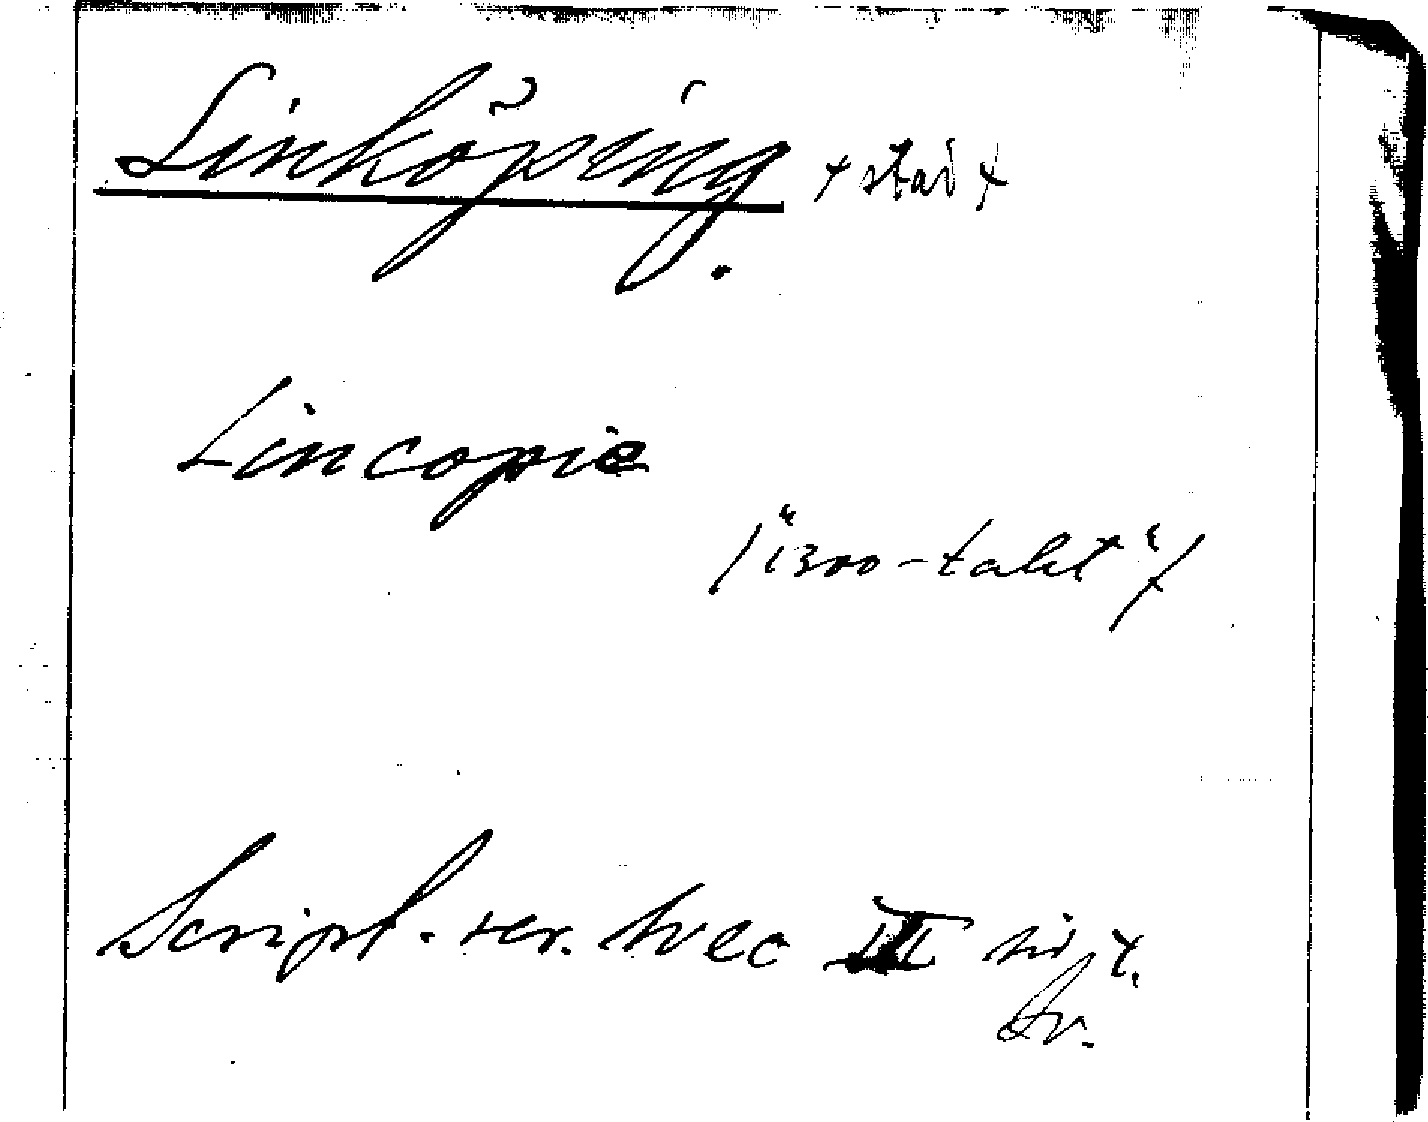 Linköping. + stad +
Lincopie
/"1300-talet"/
Script. rer. svec III sid 4.
Av.